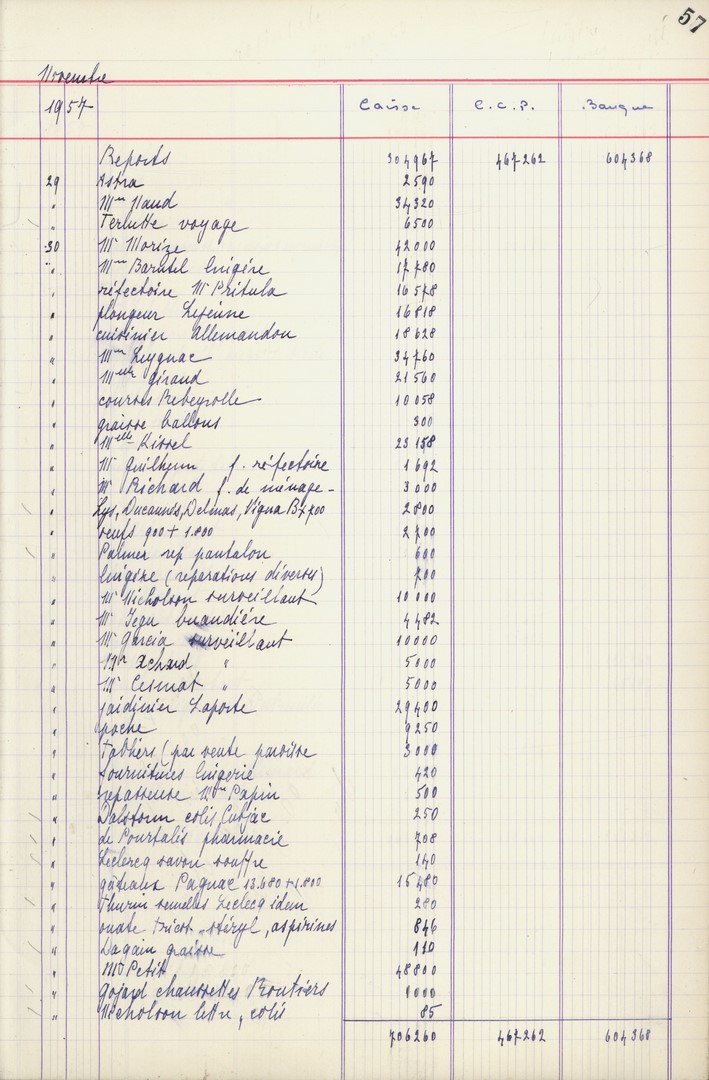 57
Novembre
1957 Caisse C.C.P. Banque
Reports 304967 467262 604368
29 Astra 2590
" Mme Naud 34320
" Terlutte voyage 6500
30 Mr Morize 42000
" Mme Barutel lingère 17780
" réfectoire Mr Pritula 16578
" plongeur Lejeune 16818
" cuisinier Allemandou 18628
" Mme Leygnac 34760
" Melle Giraud 21560
" courses Rebeyrolle 10058
" graisse ballons 300
" Melle Kissel 23158
" Mr Guilhem f. réfectoire 1692
" Mr Richard f. de ménage 3000
" Lys, Ducaunès, Delmas, Vigna B 4x700 2800
" oeufs 900 + 1.800 2700
" Palmer rep pantalon 600
" lingère (reparations diverses) 700
" Mr Nicholson surveillant 10000
" Mr Jegu buandière 4482
" Mr Garcia surveillant 10000
" Mr Achard " 5000
" Mr Cesmat " 5000
" jardinier Laporte 29400
" poche 9250
" (par vente paroisse 3000
" fournitures lingerie 420
" repasseuse Mme Papin 500
" colis Cubjac 250
" de Pourtalès pharmacie 708
" Leclercq savon souffre 140
" gâteaux Pagnac 13.680 + 1.800 15480
" Thurin semelles Leclecq idem 280
" ouate tricot, stéryl, aspirines 846
" Dagain graisse 110
" Mr Petit 48800
" Gojard chaussettes Routiers 1000
" Nicholson lettre, colis 85
706260 467262 604368